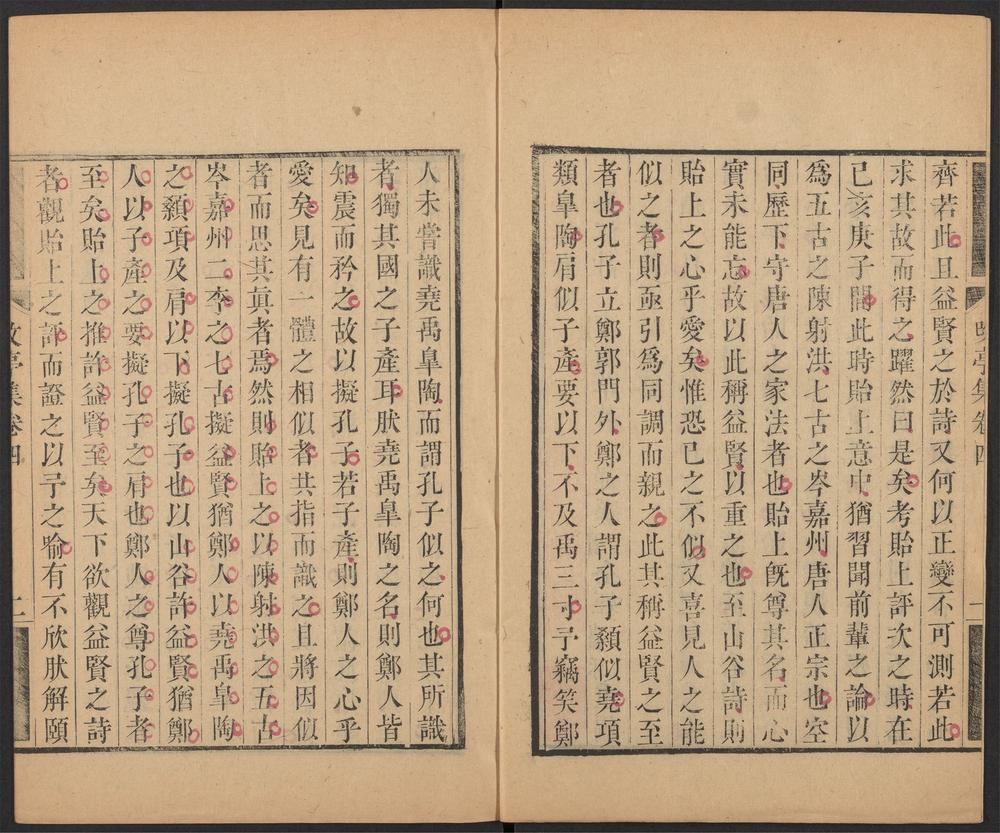 齊若此且益賢之於詩又何以正變不可測若此
求其故而得之躍然曰是矣考貽上評次之時在
己亥庚子間此時貽上意中猶習聞前輩之論以
爲五古之陳射洪七古之岑嘉州唐人正宗也空
同歷下守唐人之家法者也貽上旣尊其名而心
實未能忘故以此稱益賢以重之也至山谷詩則
貽上之心乎愛矣惟恐己之不似又喜見人之能
似之者則亟引爲同調而親之此其稱益賢之至
者也孔子立鄭郭門外鄭之人謂孔子顙似堯項
類皐陶肩似子產要以下不及禹三寸予竊笑鄭
人未嘗識堯禹皐陶而謂孔子似之何也其所識
者獨其國之子產耳肰堯禹皐陶之名則鄭人皆
知震而矜之故以擬孔子若子產則鄭人之心乎
愛矣見有一體之相似者共指而識之且將因似
者而思其眞者焉然則貽上之以陳射洪之五古
岑嘉州二李之七古擬益賢猶鄭人以堯禹皐陶
之顙項及肩以下擬孔子也以山谷許益賢猶鄭
人以子產之要擬孔子之肩也鄭人之尊孔子者
至矣貽上之推許益賢至矣天下欲觀益賢之詩
者觀貽上之評而證之以予之喻有不欣肰解頤
亭集卷四
二
亭集卷四